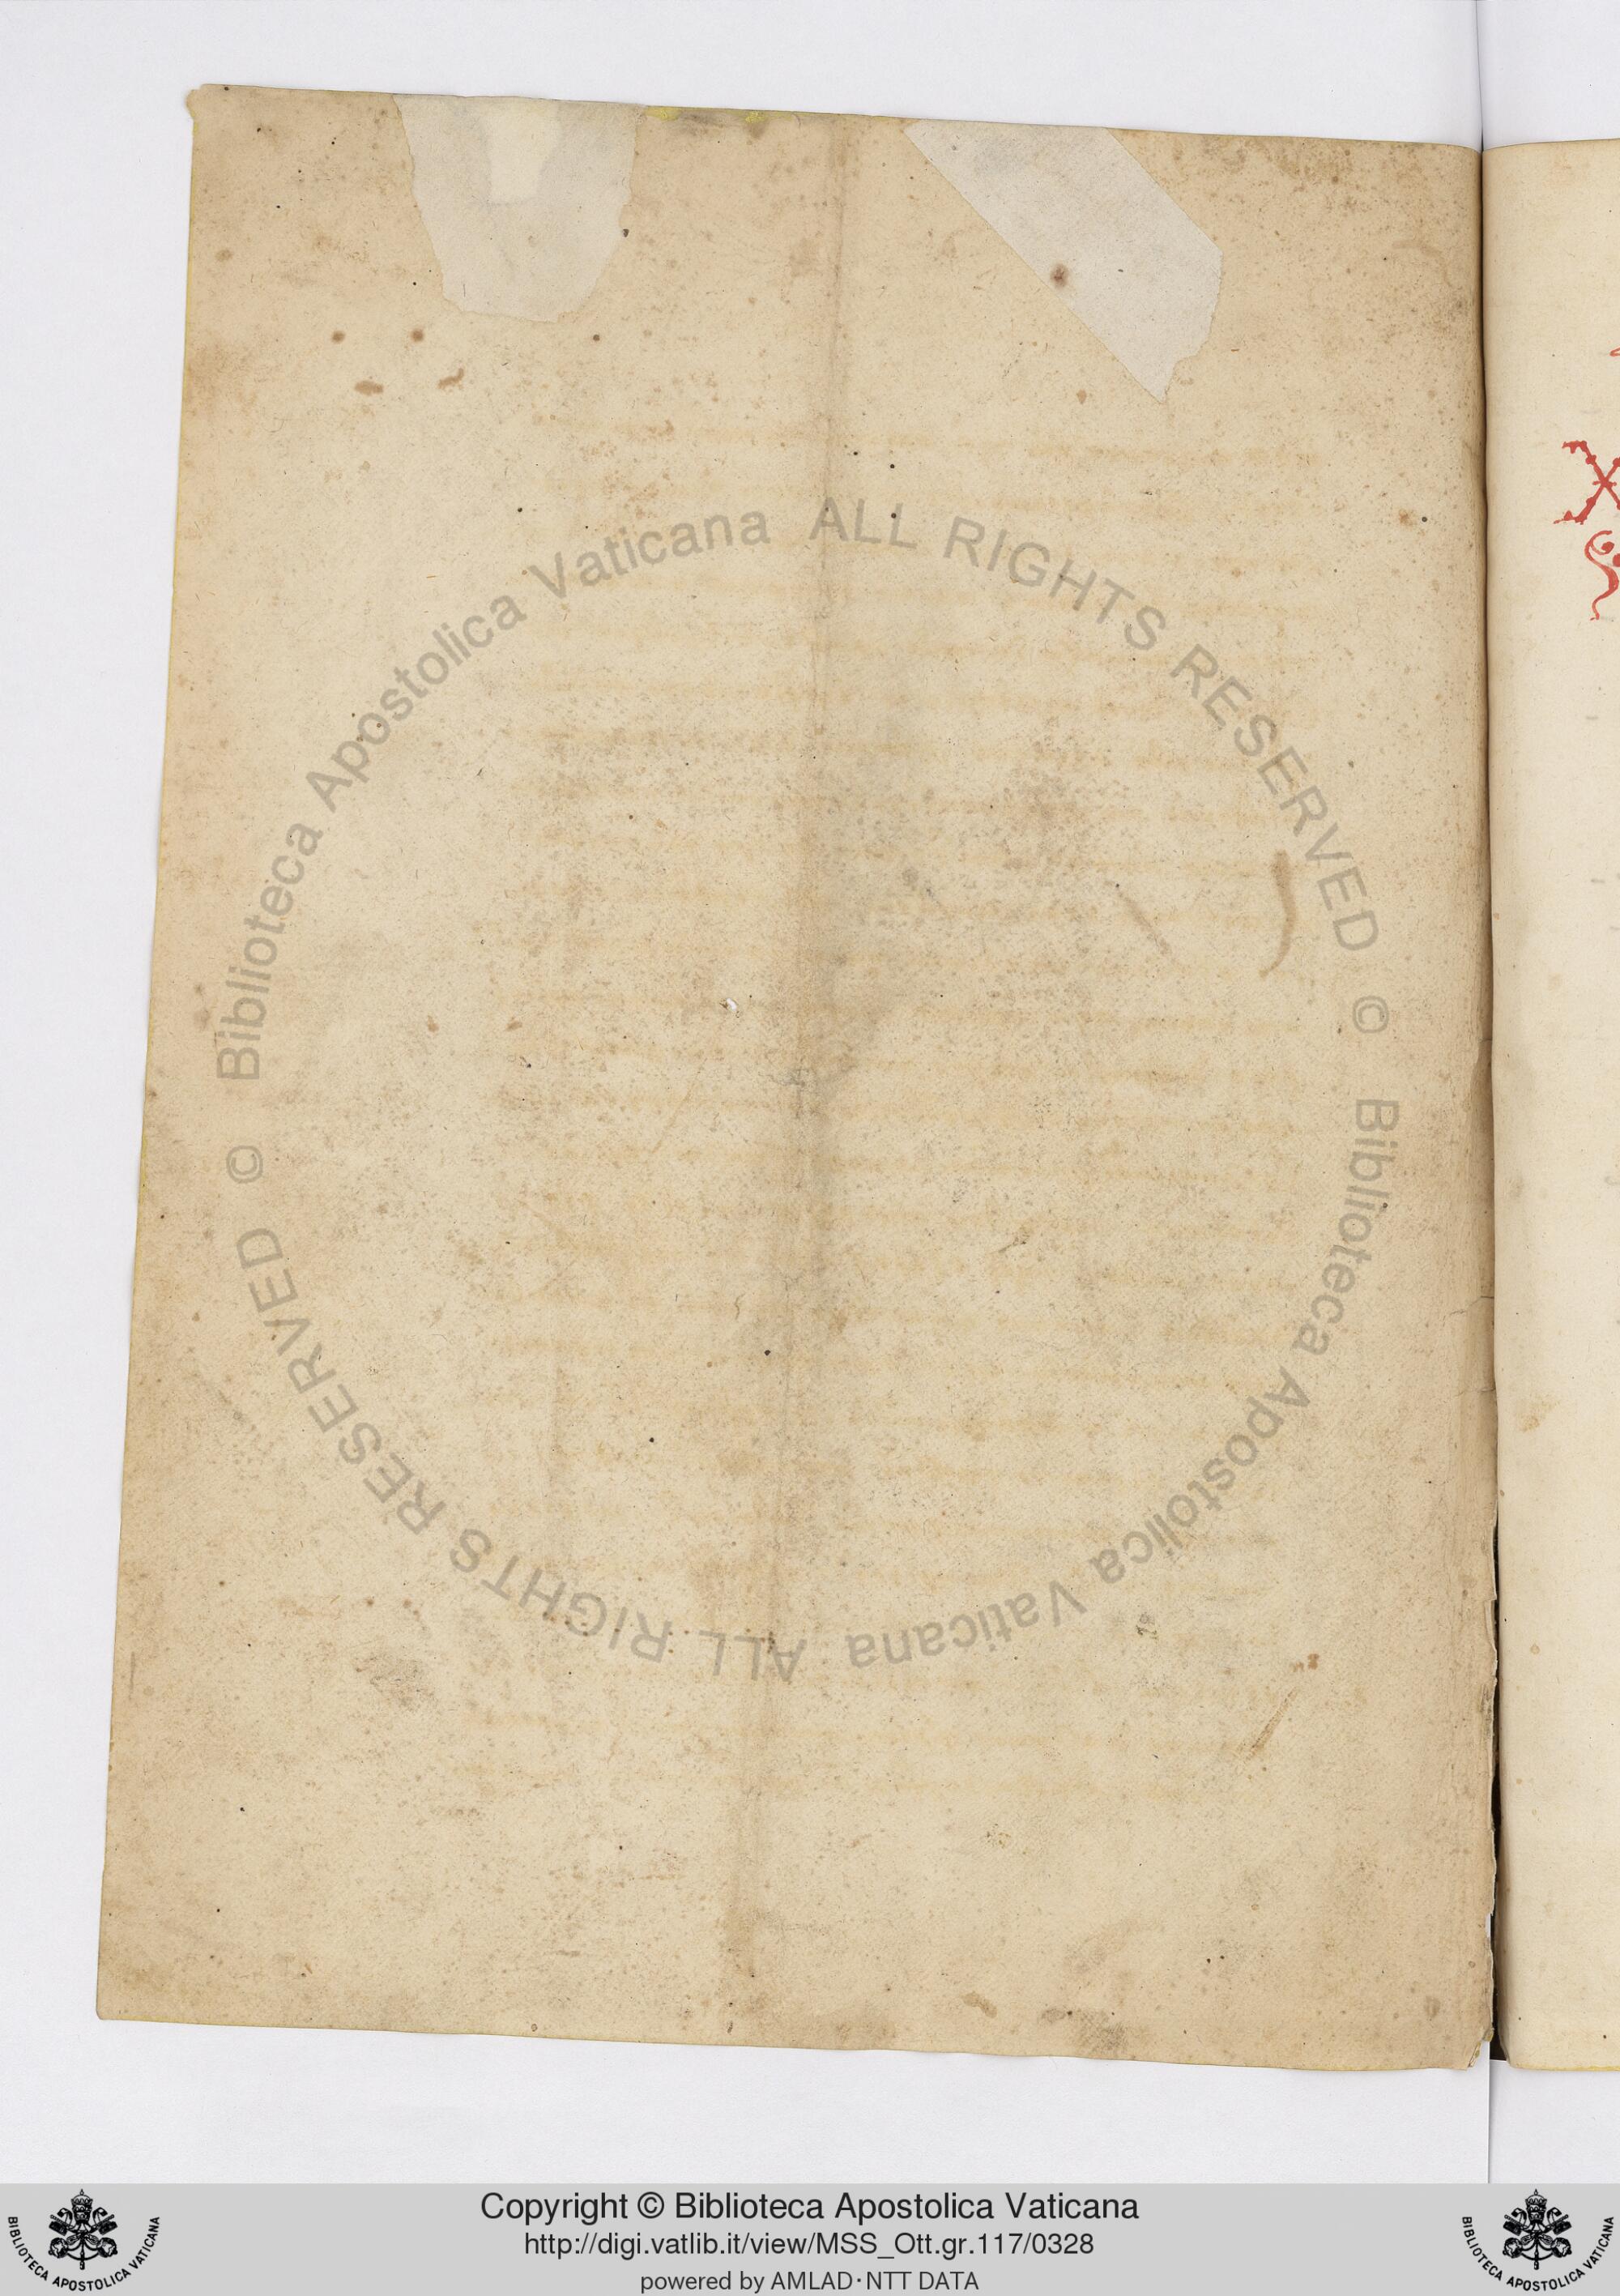 © Biblioteca Apostolica Vaticana ALL RIGHTS RESERVED © Biblioteca Apostolica Vaticana ALL RIGHTS RESERVED
Χ
Copyright © Biblioteca Apostolica Vaticana
http://digi.vatlib.it/view/MSS_Ott.gr.117/0328
powered by AMLAD·NTT DATA
BIBLIOTECA APOSTOLICA VATICANA
BIBLIOTECA APOSTOLICA VATICANA